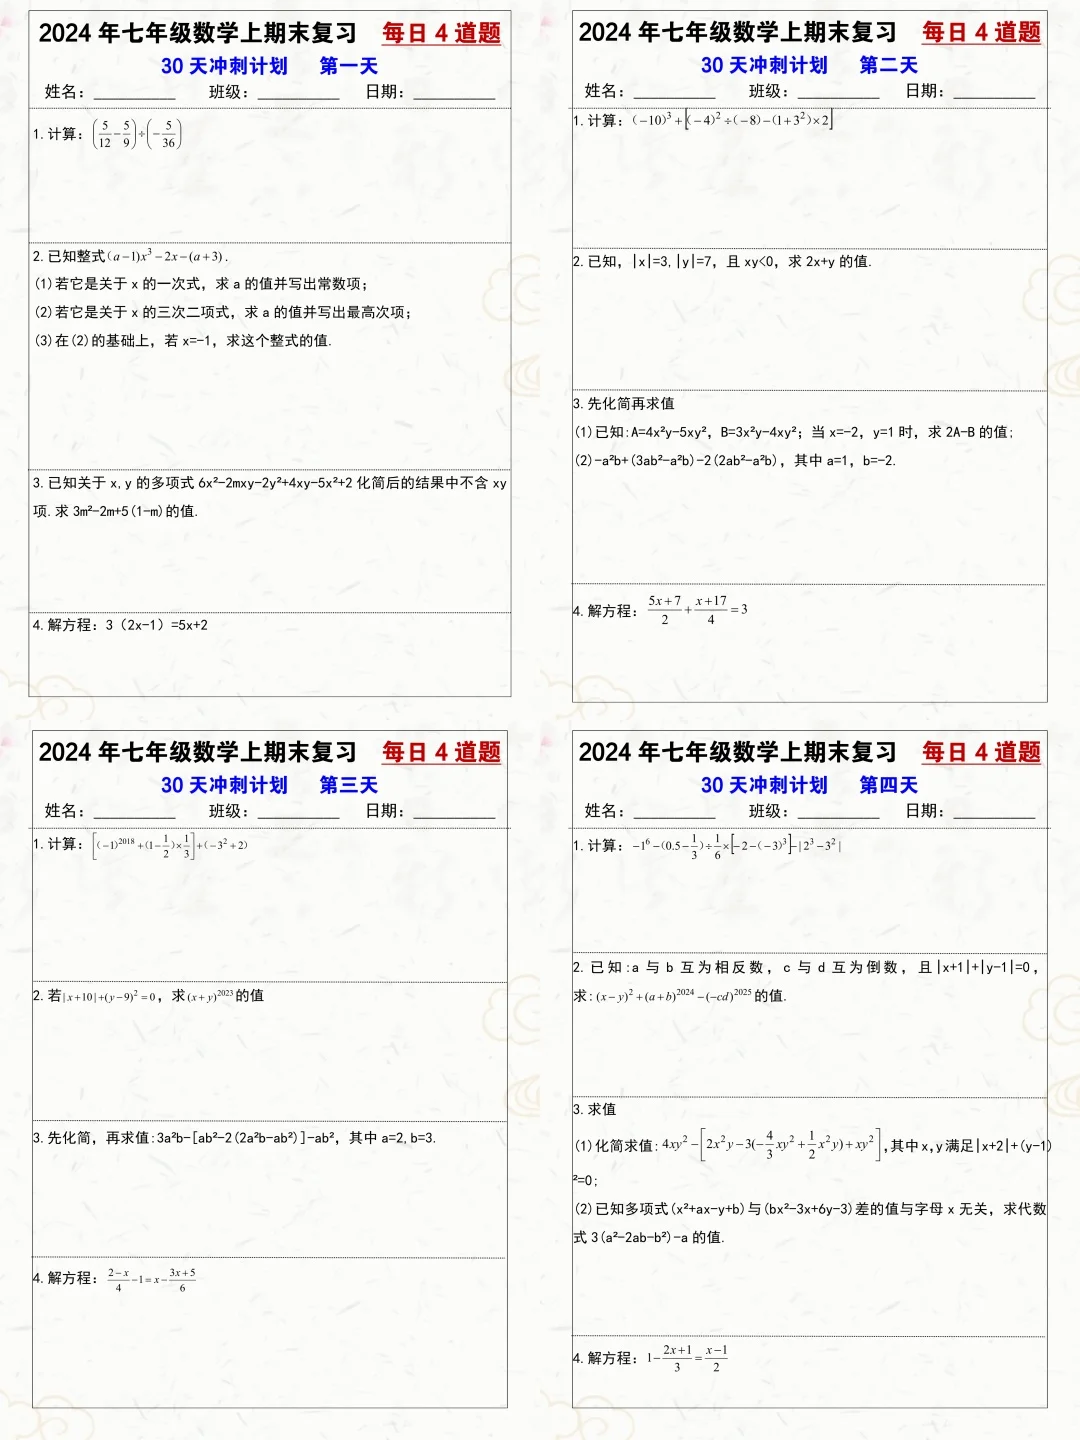 2024 年七年级数学上期末复习 每日 4 道题
30 天冲刺计划 第一天
姓名：__________ 班级：__________ 日期：__________
1.计算：(5/12−5/9)÷(−5/36)
2.已知整式(a−1)x³−2x−(a+3).
(1)若它是关于 x 的一次式，求 a 的值并写出常数项；
(2)若它是关于 x 的三次二项式，求 a 的值并写出最高次项；
(3)在(2)的基础上，若 x=-1，求这个整式的值.
3.已知关于 x,y 的多项式 6x²-2mxy-2y²+4xy-5x²+2 化简后的结果中不含 xy
项.求 3m²-2m+5(1-m)的值.
4.解方程：3（2x-1）=5x+2
2024 年七年级数学上期末复习 每日 4 道题
30 天冲刺计划 第二天
姓名：__________ 班级：__________ 日期：__________
1.计算：(−10)³+[(−4)²÷(−8)−(1+3²)×2]
2.已知，|x|=3,|y|=7，且 xy<0，求 2x+y 的值.
3.先化简再求值
(1)已知:A=4x²y-5xy²，B=3x²y-4xy²；当 x=-2，y=1 时，求 2A-B 的值;
(2)-a²b+(3ab²-a²b)-2(2ab²-a²b)，其中 a=1，b=-2.
4.解方程：(5x+7)/2+(x+17)/4=3
2024 年七年级数学上期末复习 每日 4 道题
30 天冲刺计划 第三天
姓名：__________ 班级：__________ 日期：__________
1.计算：[(−1)²⁰¹⁸+(1−1/2)×1/3]+(−3²+2)
2.若|x+10|+(y−9)²=0，求(x+y)²⁰²³的值
3.先化简，再求值:3a²b-[ab²-2(2a²b-ab²)]-ab²，其中 a=2,b=3.
4.解方程：(2−x)/4−1=x−(3x+5)/6
2024 年七年级数学上期末复习 每日 4 道题
30 天冲刺计划 第四天
姓名：__________ 班级：__________ 日期：__________
1.计算：−1⁶−(0.5−1/3)÷1/6×[−2−(−3)³]−|2³−3²|
2.已知:a 与 b 互为相反数，c 与 d 互为倒数，且|x+1|+|y-1|=0，
求:(x−y)²+(a+b)²⁰²⁴−(−cd)²⁰²⁵的值.
3.求值
(1)化简求值:4xy²−[2x²y−3(−4/3xy²+1/2x²y)+xy²],其中x,y满足|x+2|+(y-1)
²=0;
(2)已知多项式(x²+ax-y+b)与(bx²-3x+6y-3)差的值与字母 x 无关，求代数
式 3(a²-2ab-b²)-a 的值.
4.解方程：1−(2x+1)/3=(x−1)/2